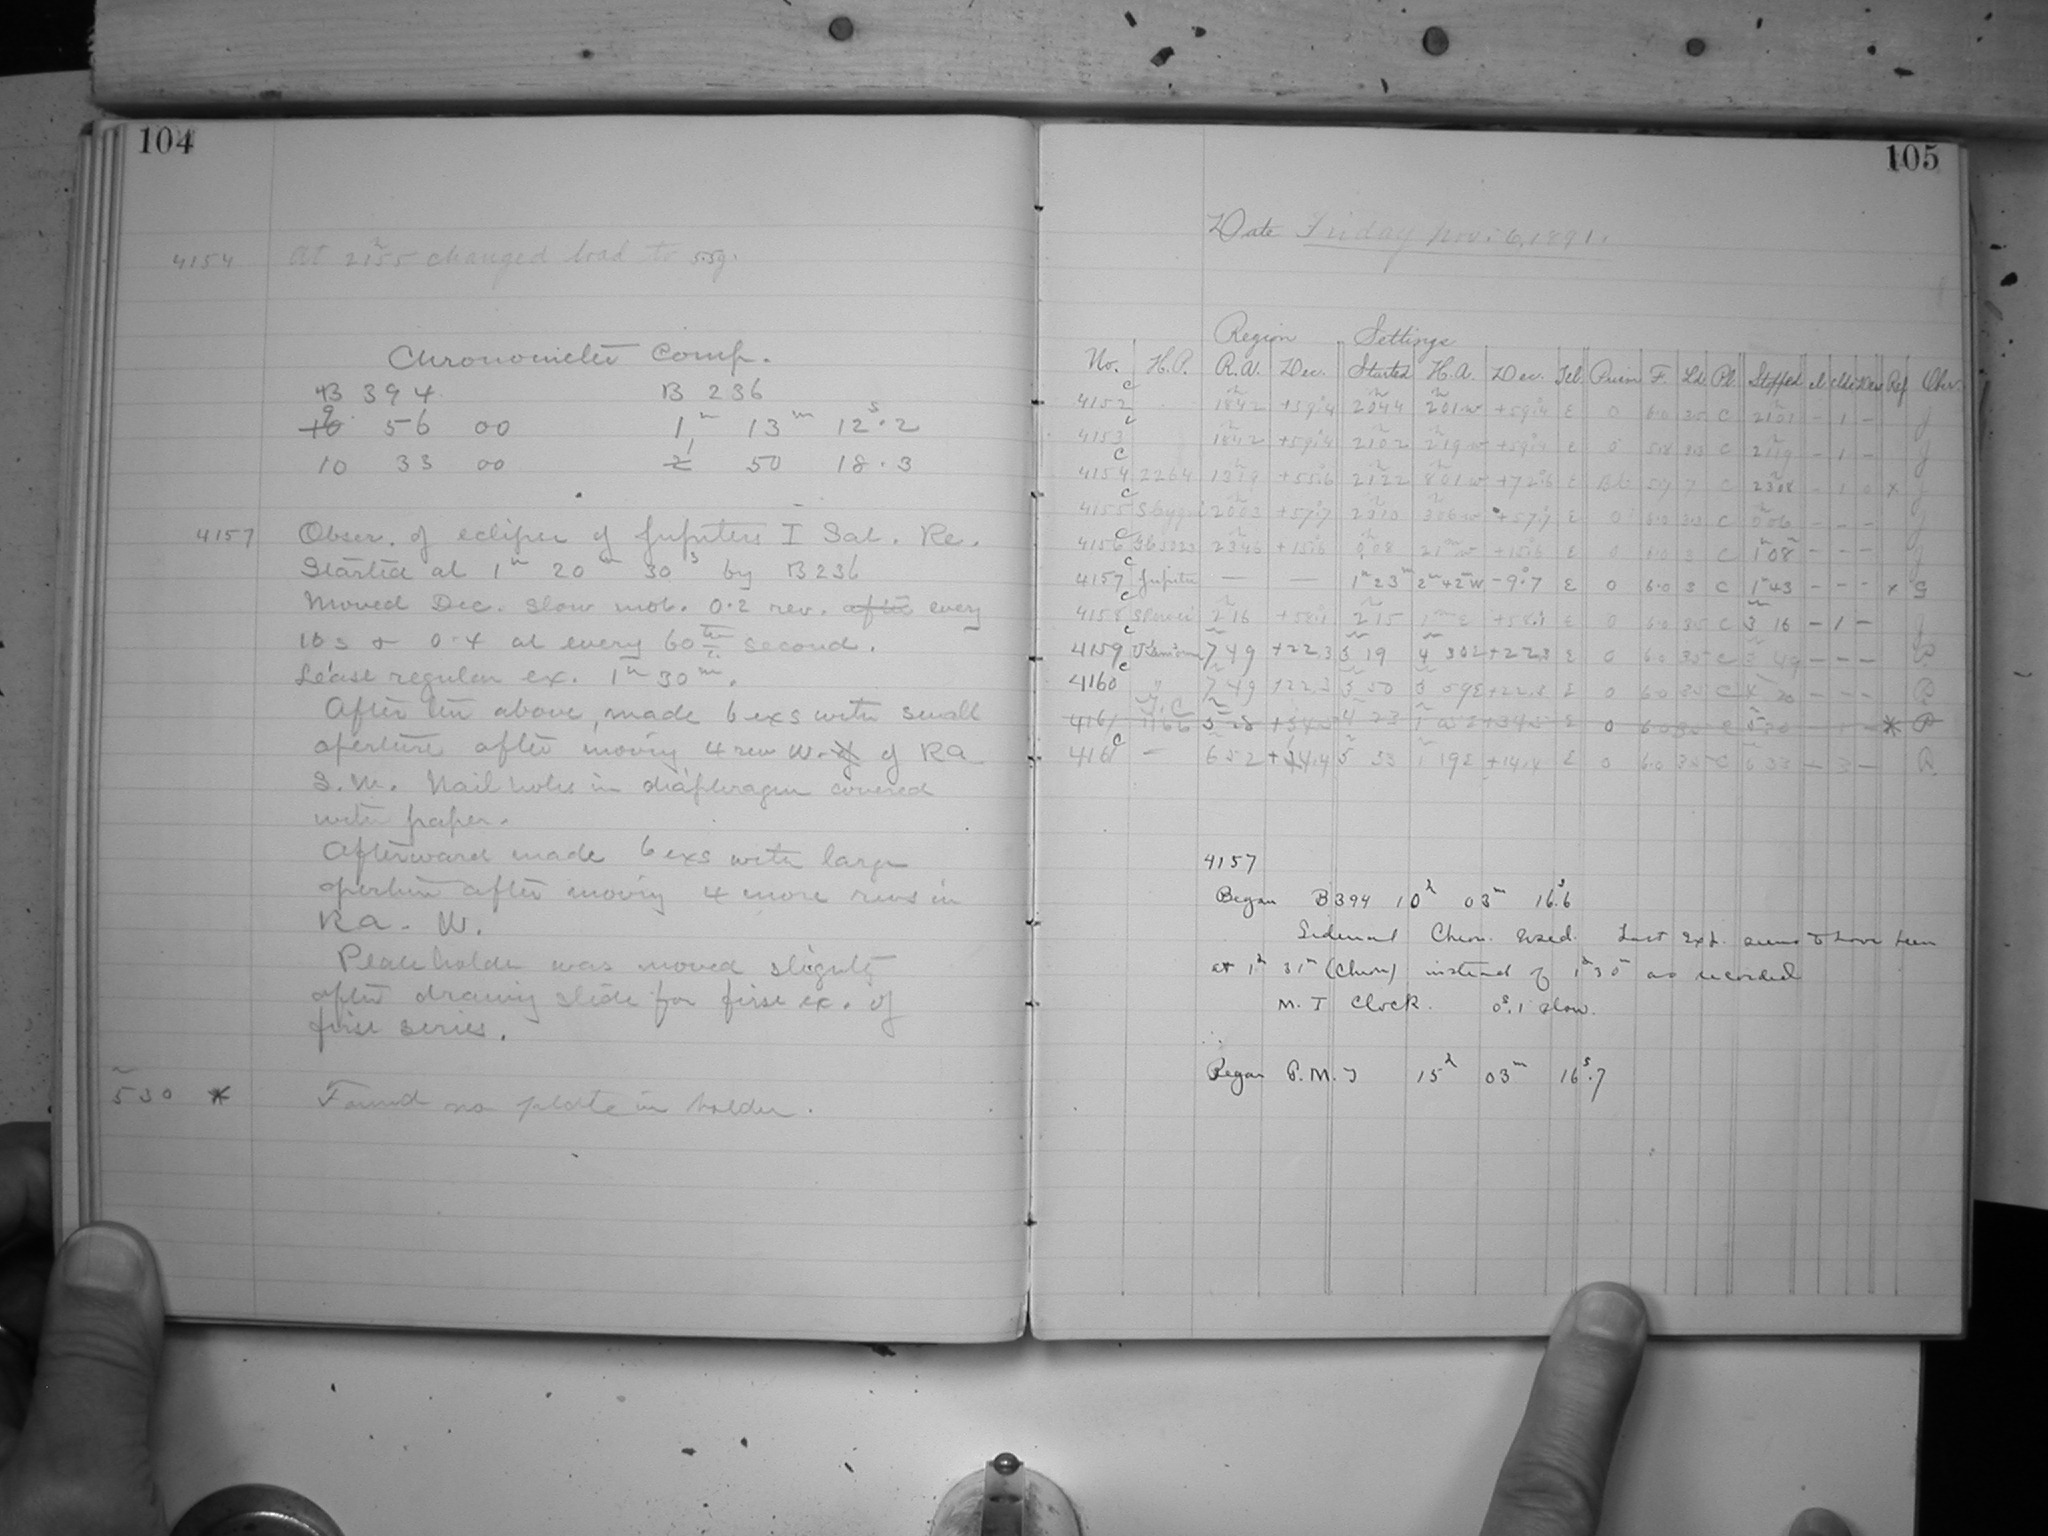 104
4154 At 21h55 changed load to 5.5g.
Chronometer Comp.
B 394 B 236
9
10 56 00 1h 13m 12s.2
1
10 33 00 2 50 18.3
4157 Obser. of eclipse of Jupiters I Sat. Re.
Started at 1h 20m 30s by B 236
Moved Dec. slow mot. 0.2 rev. after every
10s & 0.4 at every 60th second.
Lease regular ex. 1h 30m.
After the above, made 6 exs with small
aperture after moving 4 rev W. of of RA
S.M. Nail holes in diaphragm covered
with paper.
Afterward made 6 exs with large
aperture after moving 4 more revs in
RA. W.
Plate holder was moved slightly
after drawing slide for first ex. of
first series.
5 30 * Found no plate in holder.
105
Date Friday Nov. 6, 1891.
Region Settings
No. H.P. R.A. Dec. Started H.A. Dec. Tel. Prism F. Ld Pl. Stopped Ref Obsr.
4152c 18h42 +59°.4 20h44 2h01w +59°.4 E 0 6.0 35 C 21h01 - 1 - J
4153c 18h42 +59°.4 21h02 2h19w +59°.4 E 0 5.8 3.3 C 21h19 - 1 - J
4154c 2264 13h19 +55°.6 21h22 8h01w +72°.6 E 5.9 7 C 23h08 - 1 0 x J
4155c 20h03 +57°.7 23h10 3h06w +57°.7 E 0 6.0 3.5 C 0h06 - - - J
4156c 23h46 +15°.6 0h08 21m w +15°.6 E 0 6.0 3 C 1h08 - - - J
4157c Jupiter — — 1h23m 2h42m W -9°.7 E 0 6.0 3 C 1h43 - - - x G
4158c 2h16 +58.1 2h15 1m E +58.1 E 0 6.0 35 C 3 16 - 1 - J
4159c 7 49 +22.3 3 19 4 30E +22.3 E 0 6.0 35 C 3 49 - - -
4160c " 7 49 +22.3 3 50 3 59E +22.3 E 0 6.0 35 C 4 20 - - -
G.C.
4161 1166 5 28 4 23 E 0 6.0 35 C 5 30 - 1 - *
4161c - 6 52 +14.4 5 33 1 19E +14.4 E 0 6.0 35 C 6 33 - 3 -
4157
Began B 394 10h 03m 16s.6
Sidereal Chron. used. Last Exp. seems to have been
at 1h 31m (Chron) instead of 1h 30m as recorded
M. T Clock. 0s.1 slow.
∴
Began G.M.T 15h 03m 16s.7